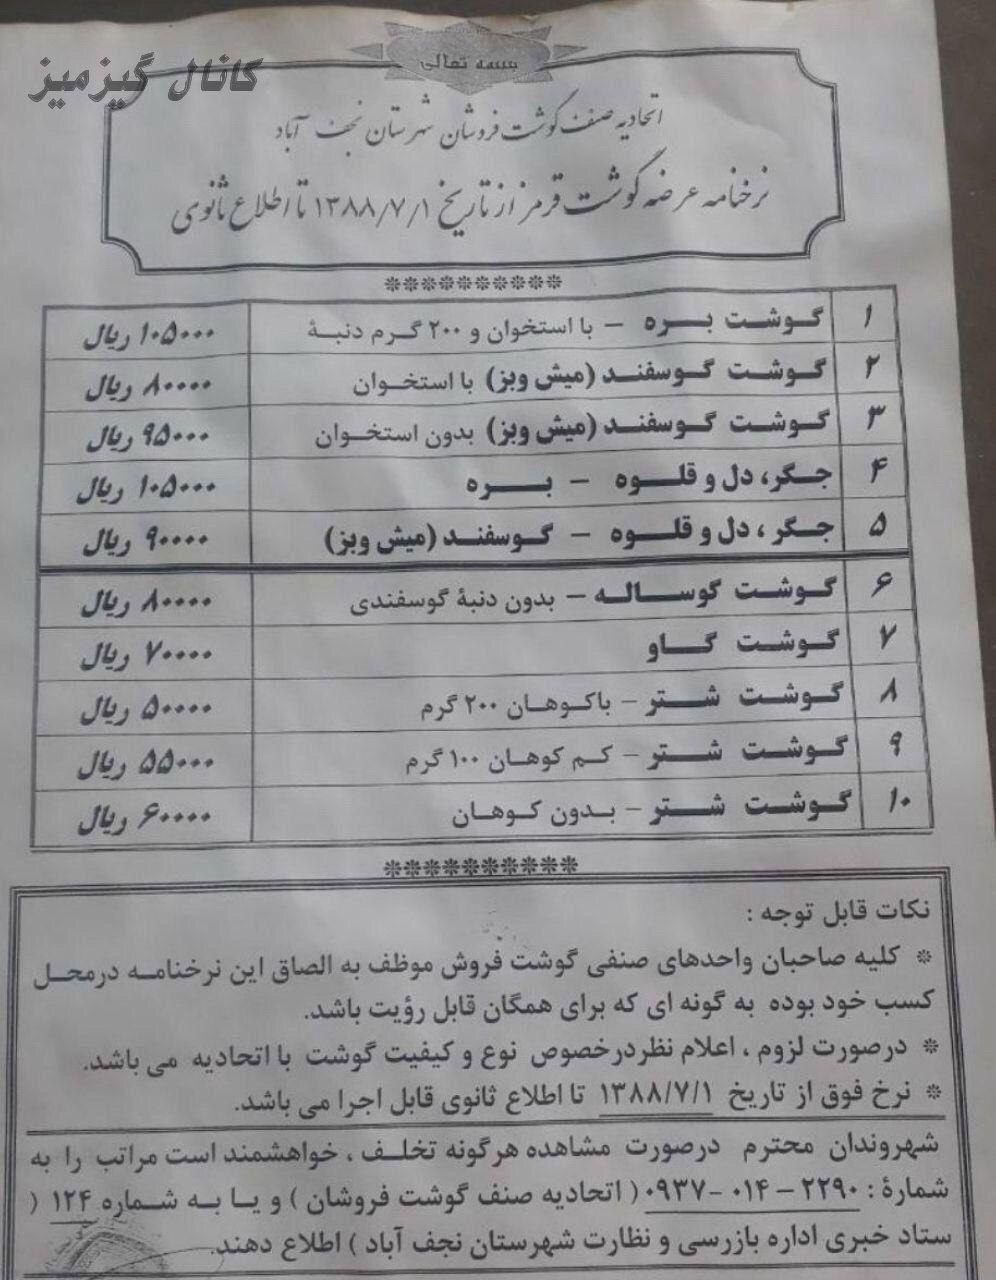 کانال گیزمیز
بسمه تعالی
اتحادیه صنف گوشت فروشان شهرستان نجف آباد
نرخنامه عرضه گوشت قرمز از تاریخ ۱۳۸۸/۷/۱ تا اطلاع ثانوی
۱ گوشت بره - با استخوان و ۲۰۰ گرم دنبۀ ۱۰۵۰۰۰ ریال
۲ گوشت گوسفند (میش وبز) با استخوان ۸۰۰۰۰ ریال
۳ گوشت گوسفند (میش وبز) بدون استخوان ۹۵۰۰۰ ریال
۴ جگر، دل و قلوه - بره ۱۰۵۰۰۰ ریال
۵ جگر ، دل و قلوه - گوسفند (میش وبز) ۹۰۰۰۰ ریال
۶ گوشت گوساله - بدون دنبۀ گوسفندی ۸۰۰۰۰ ریال
۷ گوشت گاو ۷۰۰۰۰ ریال
۸ گوشت شتر - باکوهان ۲۰۰ گرم ۵۰۰۰۰ ریال
۹ گوشت شتر - کم کوهان ۱۰۰ گرم ۵۵۰۰۰ ریال
۱۰ گوشت شتر - بدون کوهان ۶۰۰۰۰ ریال
نکات قابل توجه :
* کلیه صاحبان واحدهای صنفی گوشت فروش موظف به الصاق این نرخنامه درمحل
کسب خود بوده به گونه ای که برای همگان قابل رؤیت باشد.
* درصورت لزوم ، اعلام نظردرخصوص نوع و کیفیت گوشت با اتحادیه می باشد.
* نرخ فوق از تاریخ ۱۳۸۸/۷/۱ تا اطلاع ثانوی قابل اجرا می باشد.
شهروندان محترم درصورت مشاهده هرگونه تخلف ، خواهشمند است مراتب را به
شمارۀ : ۲۲۹۰ - ۰۱۴ -۰۹۳۷ ( اتحادیه صنف گوشت فروشان ) و یا به شماره ۱۲۴ (
ستاد خبری اداره بازرسی و نظارت شهرستان نجف آباد ) اطلاع دهند.